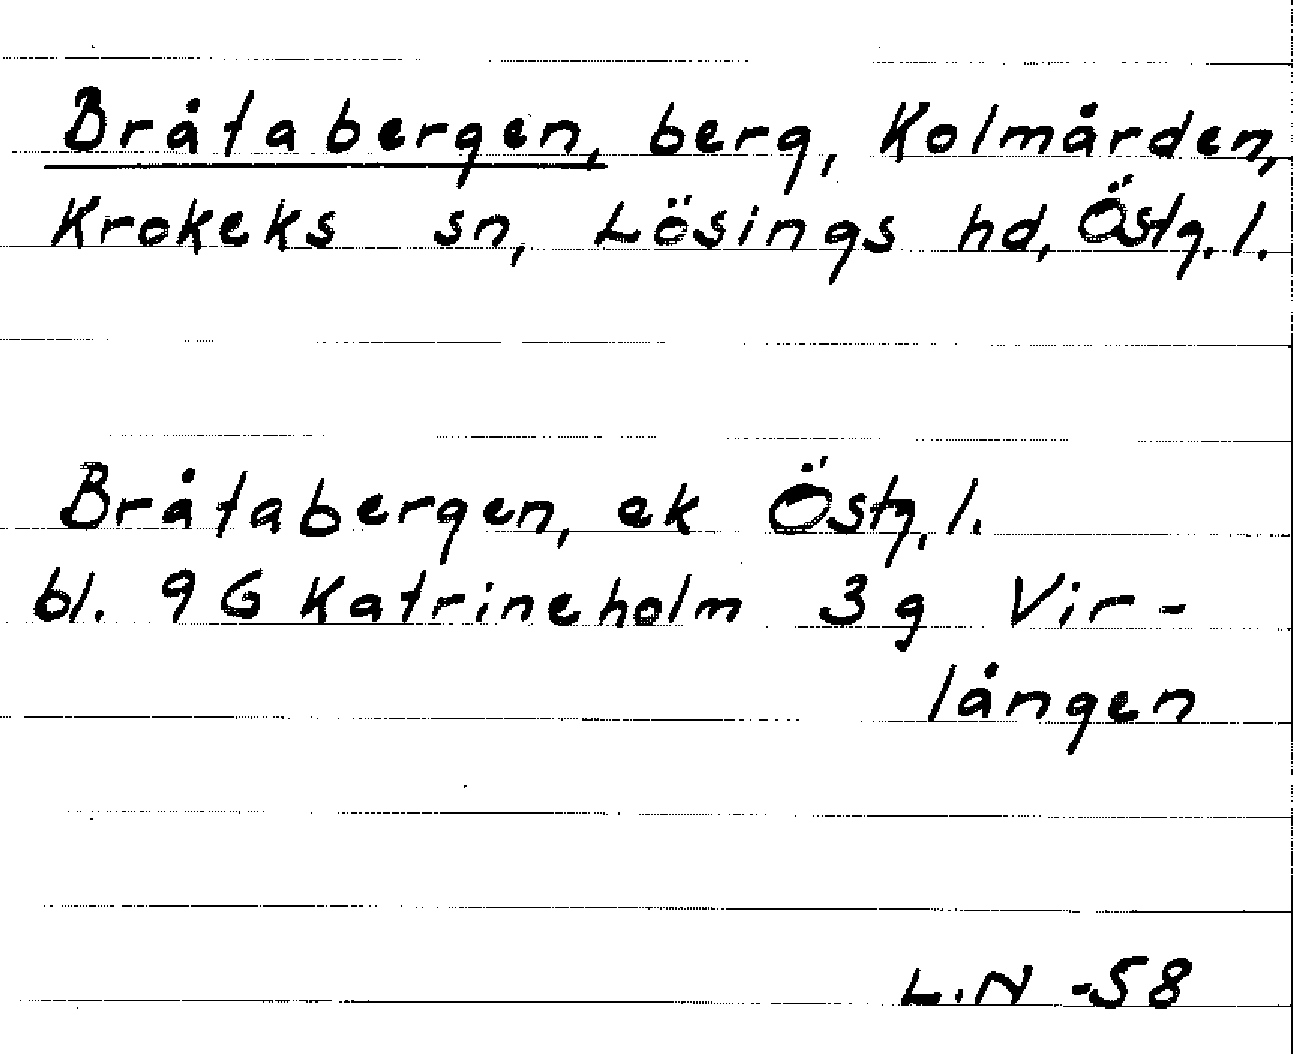 Bråtabergen, berg, Kolmården,
Krokeks sn, Lösings hd, Östg.l.
Bråtabergen, ek Östg.l.
bl. 9G Katrineholm 3g Vir-
lången
L.N -58